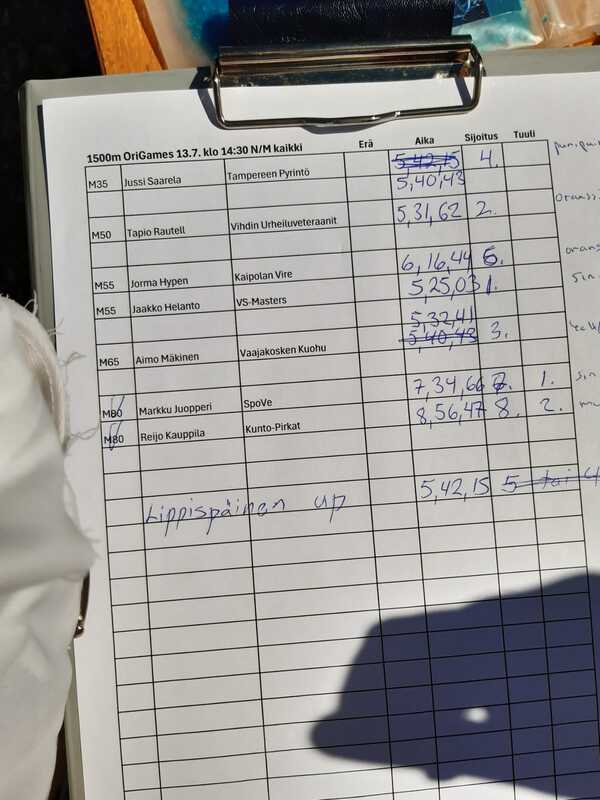 1500m OriGames 13.7. klo 14:30 N/M kaikki Erä Aika Sijoitus Tuuli
M35 Jussi Saarela Tampereen Pyrintö 5,42,15 4.
5,40,43
M50 Tapio Rautell Vihdin Urheiluveteraanit 5,31,62 2.
M55 Jorma Hypen Kaipolan Vire 6,16,44 6.
M55 Jaakko Helanto VS-Masters 5,25,03 1.
5,32,41
M65 Aimo Mäkinen Vaajakosken Kuohu 5,40,43 3.
M80 Markku Juopperi SpoVe 7,34,66 7. 1.
M80 Reijo Kauppila Kunto-Pirkat 8,56,47 8. 2.
Lippispäinen up 5,42,15 5 tai 4